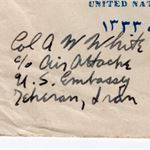 UNITED NAT
۱۳۳۳
Col A W White
c/o Air Attache
U.S. Embassy
Teheran, Iran